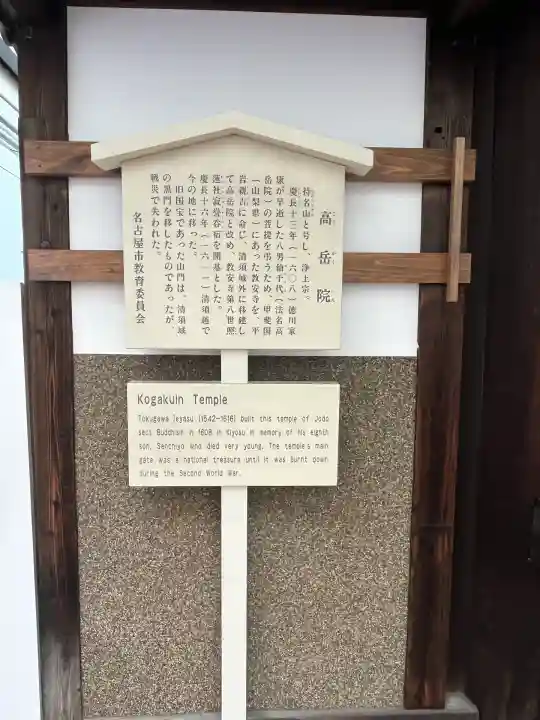 高岳院
待名山と号し、浄土宗。
慶長十三年(一六〇八)徳川家
康が早逝した八男仙千代(法名高
岳院)の菩提を弔うため、甲斐国
(山梨県)にあった教安寺を、平
岩親吉に命じ、清須城外に移建し
て高岳院と改め、教安寺第八世照
蓮社寂誉呑宿を開基とした。
慶長十六年(一六一一)清須越で
今の地に移った。
旧国宝であった山門は、清須城
の黒門を移したものであったが、
戦災で失われた。
名古屋市教育委員会
Kogakuin Temple
Tokugawa Ieyasu (1542-1616) built this temple of Jodo
sect Buddhism in 1608 in Kiyosu in memory of his eighth
son, Senchiyo who died very young. The temple's main
gate was a national treasure until it was burnt down
during the Second World War.